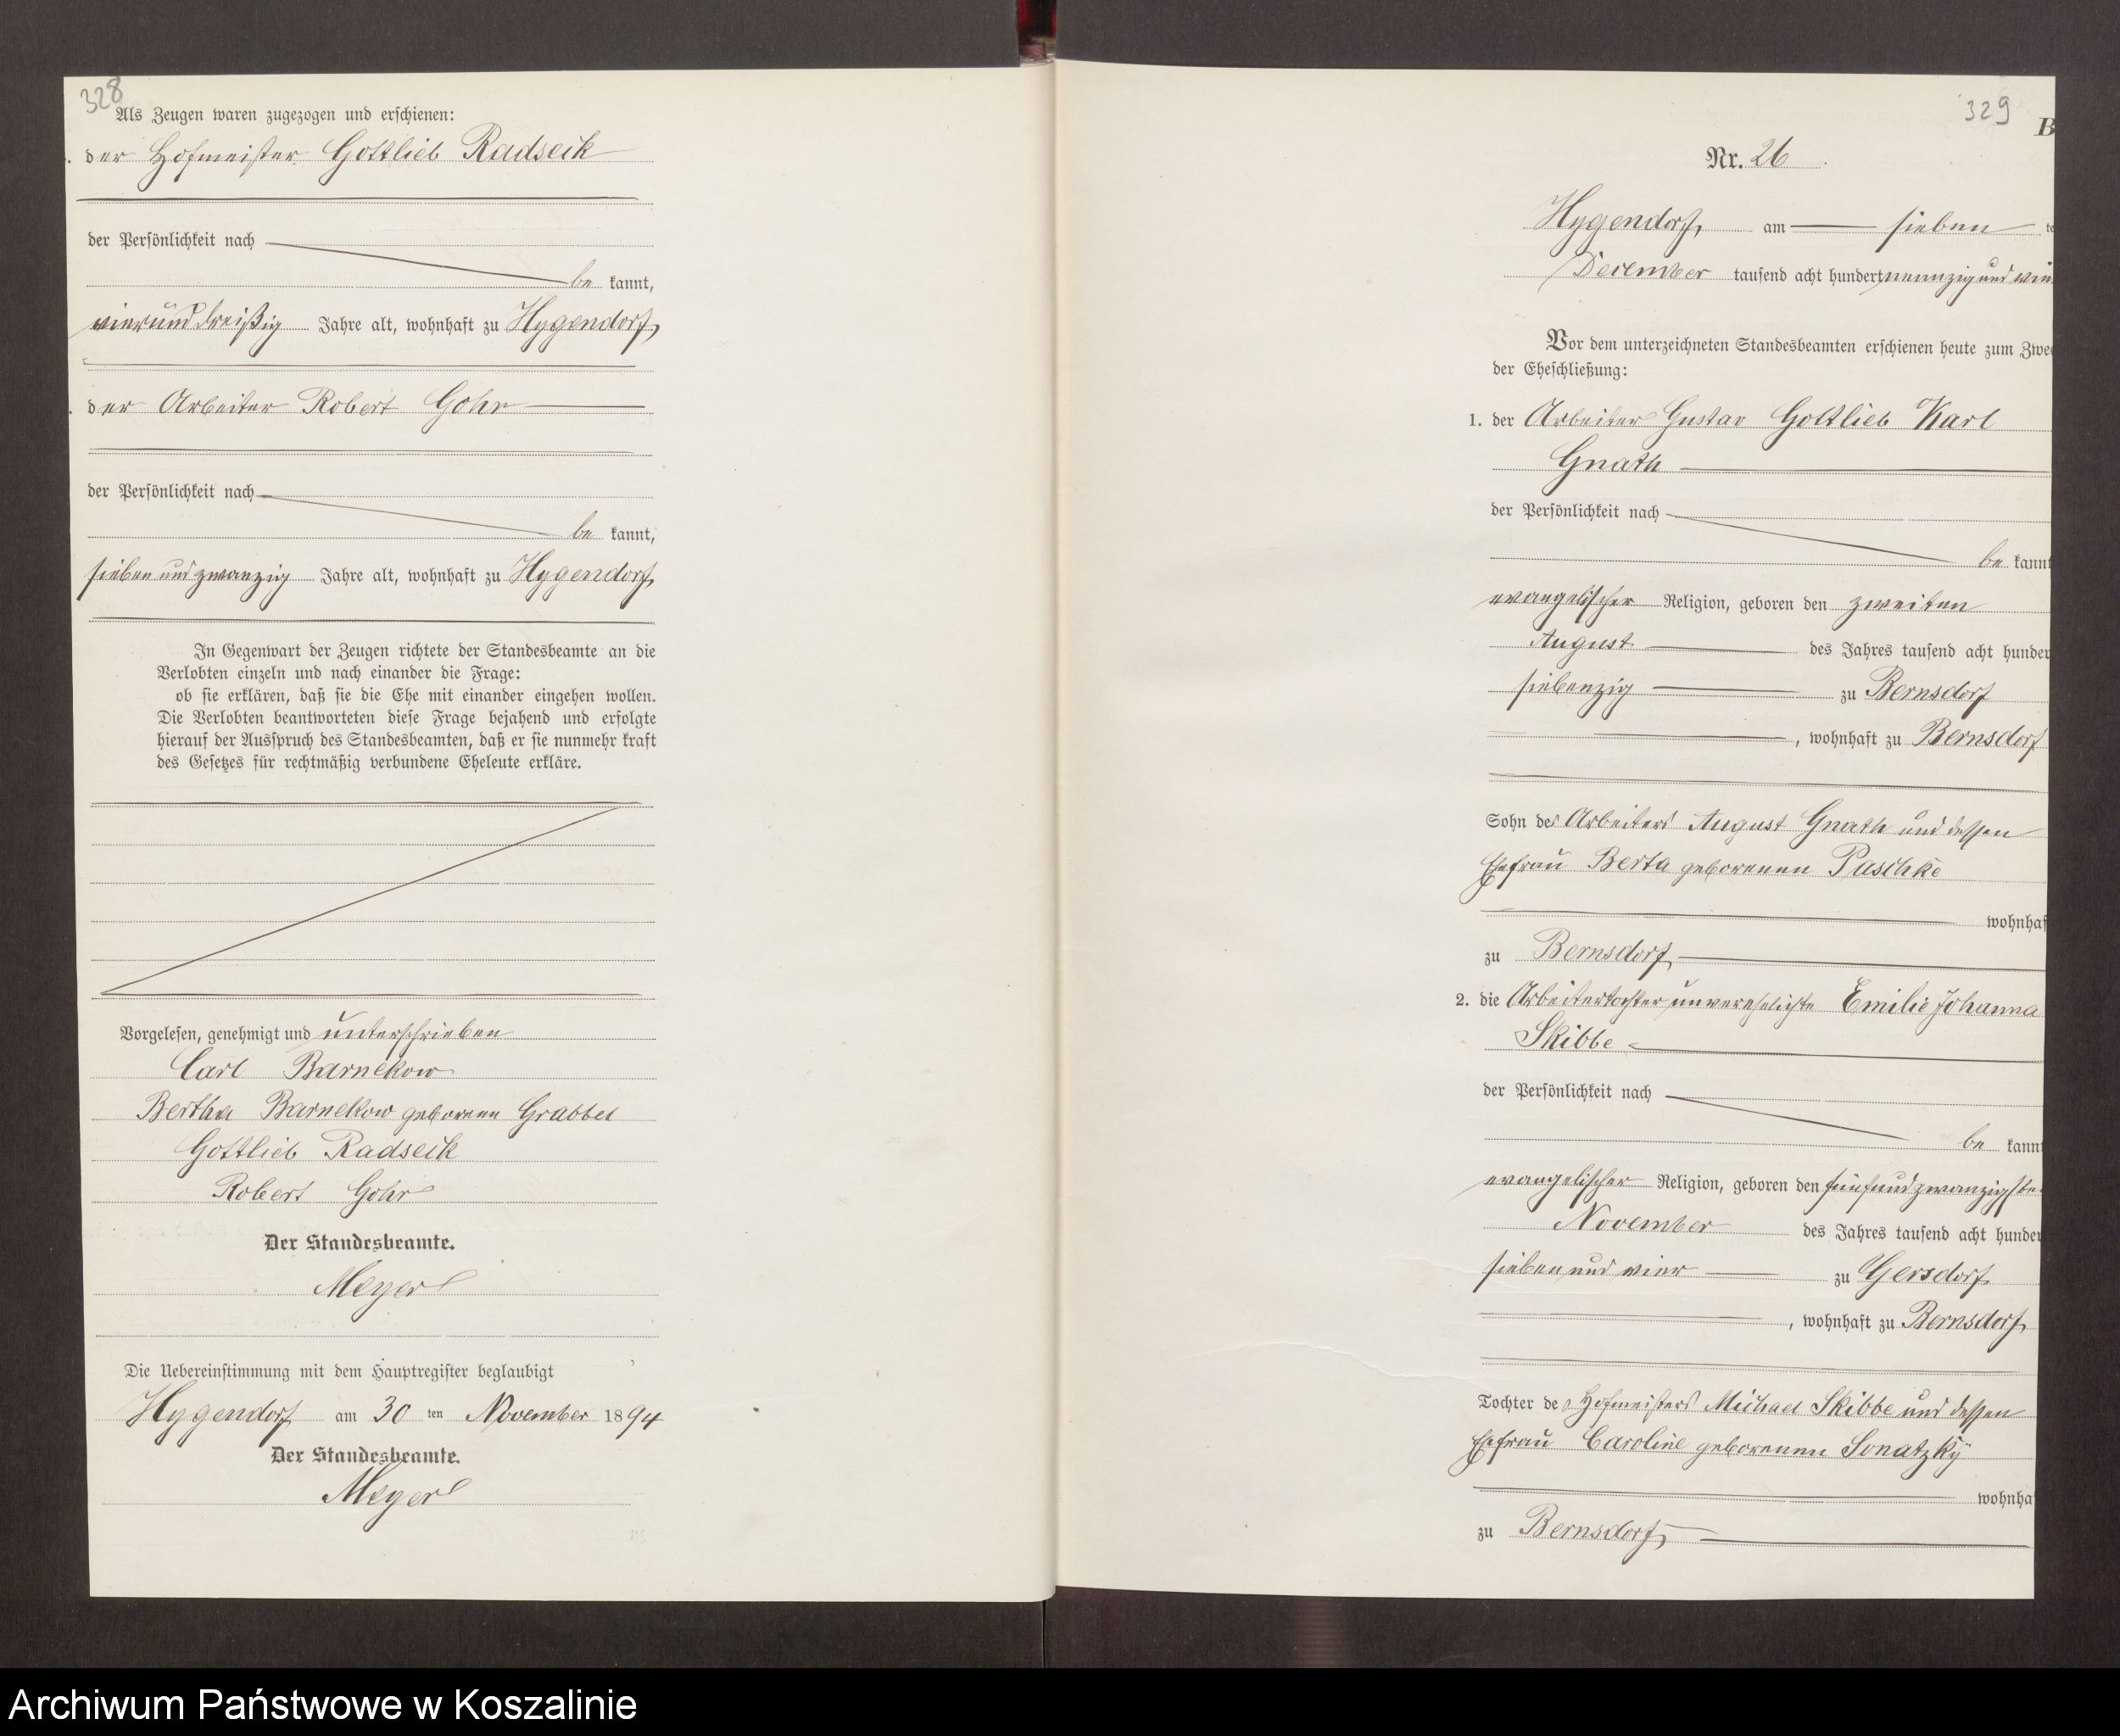 328
Als Zeugen waren zugezogen und erschienen:
der Hofmeister Gottlieb Radseck
der Persönlichkeit nach
be kannt,
vierunddreißig Jahre alt, wohnhaft zu Hygendorf,
der Arbeiter Robert Gohr
der Persönlichkeit nach
be kannt,
siebenundzwanzig Jahre alt, wohnhaft zu Hygendorf,
In Gegenwart der Zeugen richtete der Standesbeamte an die
Verlobten einzeln und nach einander die Frage:
ob sie erklären, daß sie die Ehe mit einander eingehen wollen.
Die Verlobten beantworteten diese Frage bejahend und erfolgte
hierauf der Ausspruch des Standesbeamten, daß er sie nunmehr kraft
des Gesetzes für rechtmäßig verbundene Eheleute erkläre.
Vorgelesen, genehmigt und unterschrieben
Carl Barnekow
Bertha Barnekow geborene Grabbel
Gottlieb Radseck
Robert Gohr
Der Standesbeamte.
Meyer
Die Uebereinstimmung mit dem Hauptregister beglaubigt
Hygendorf am 30 ten November 1894
Der Standesbeamte.
Meyer
329
B
Nr. 26
Hygendorf, am sieben te
December tausend acht hundert neunzig und vier
Vor dem unterzeichneten Standesbeamten erschienen heute zum Zwe
der Eheschließung:
1. der Arbeiter Gustav Gottlieb Karl
Gnath
der Persönlichkeit nach
be kannt
evangelischer Religion, geboren den zweiten
August des Jahres tausend acht hunder
siebenzig zu Bernsdorf
, wohnhaft zu Bernsdorf
Sohn des Arbeiters August Gnath und dessen
Ehefrau Berta geborenen Paschke
wohnhaf
zu Bernsdorf,
2. die Arbeitertochter, unverehelichte Emilie Johanna
Skibbe
der Persönlichkeit nach
be kannt
evangelischer Religion, geboren den fünfundzwanzigste
November des Jahres tausend acht hunder
sieben und vier zu Gersdorf
, wohnhaft zu Bernsdorf,
Tochter des Hofmeisters Michael Skibbe und dessen
Ehefrau Caroline geborenen Sonatzky
wohnha
zu Bernsdorf,
Archiwum Państwowe w Koszalinie